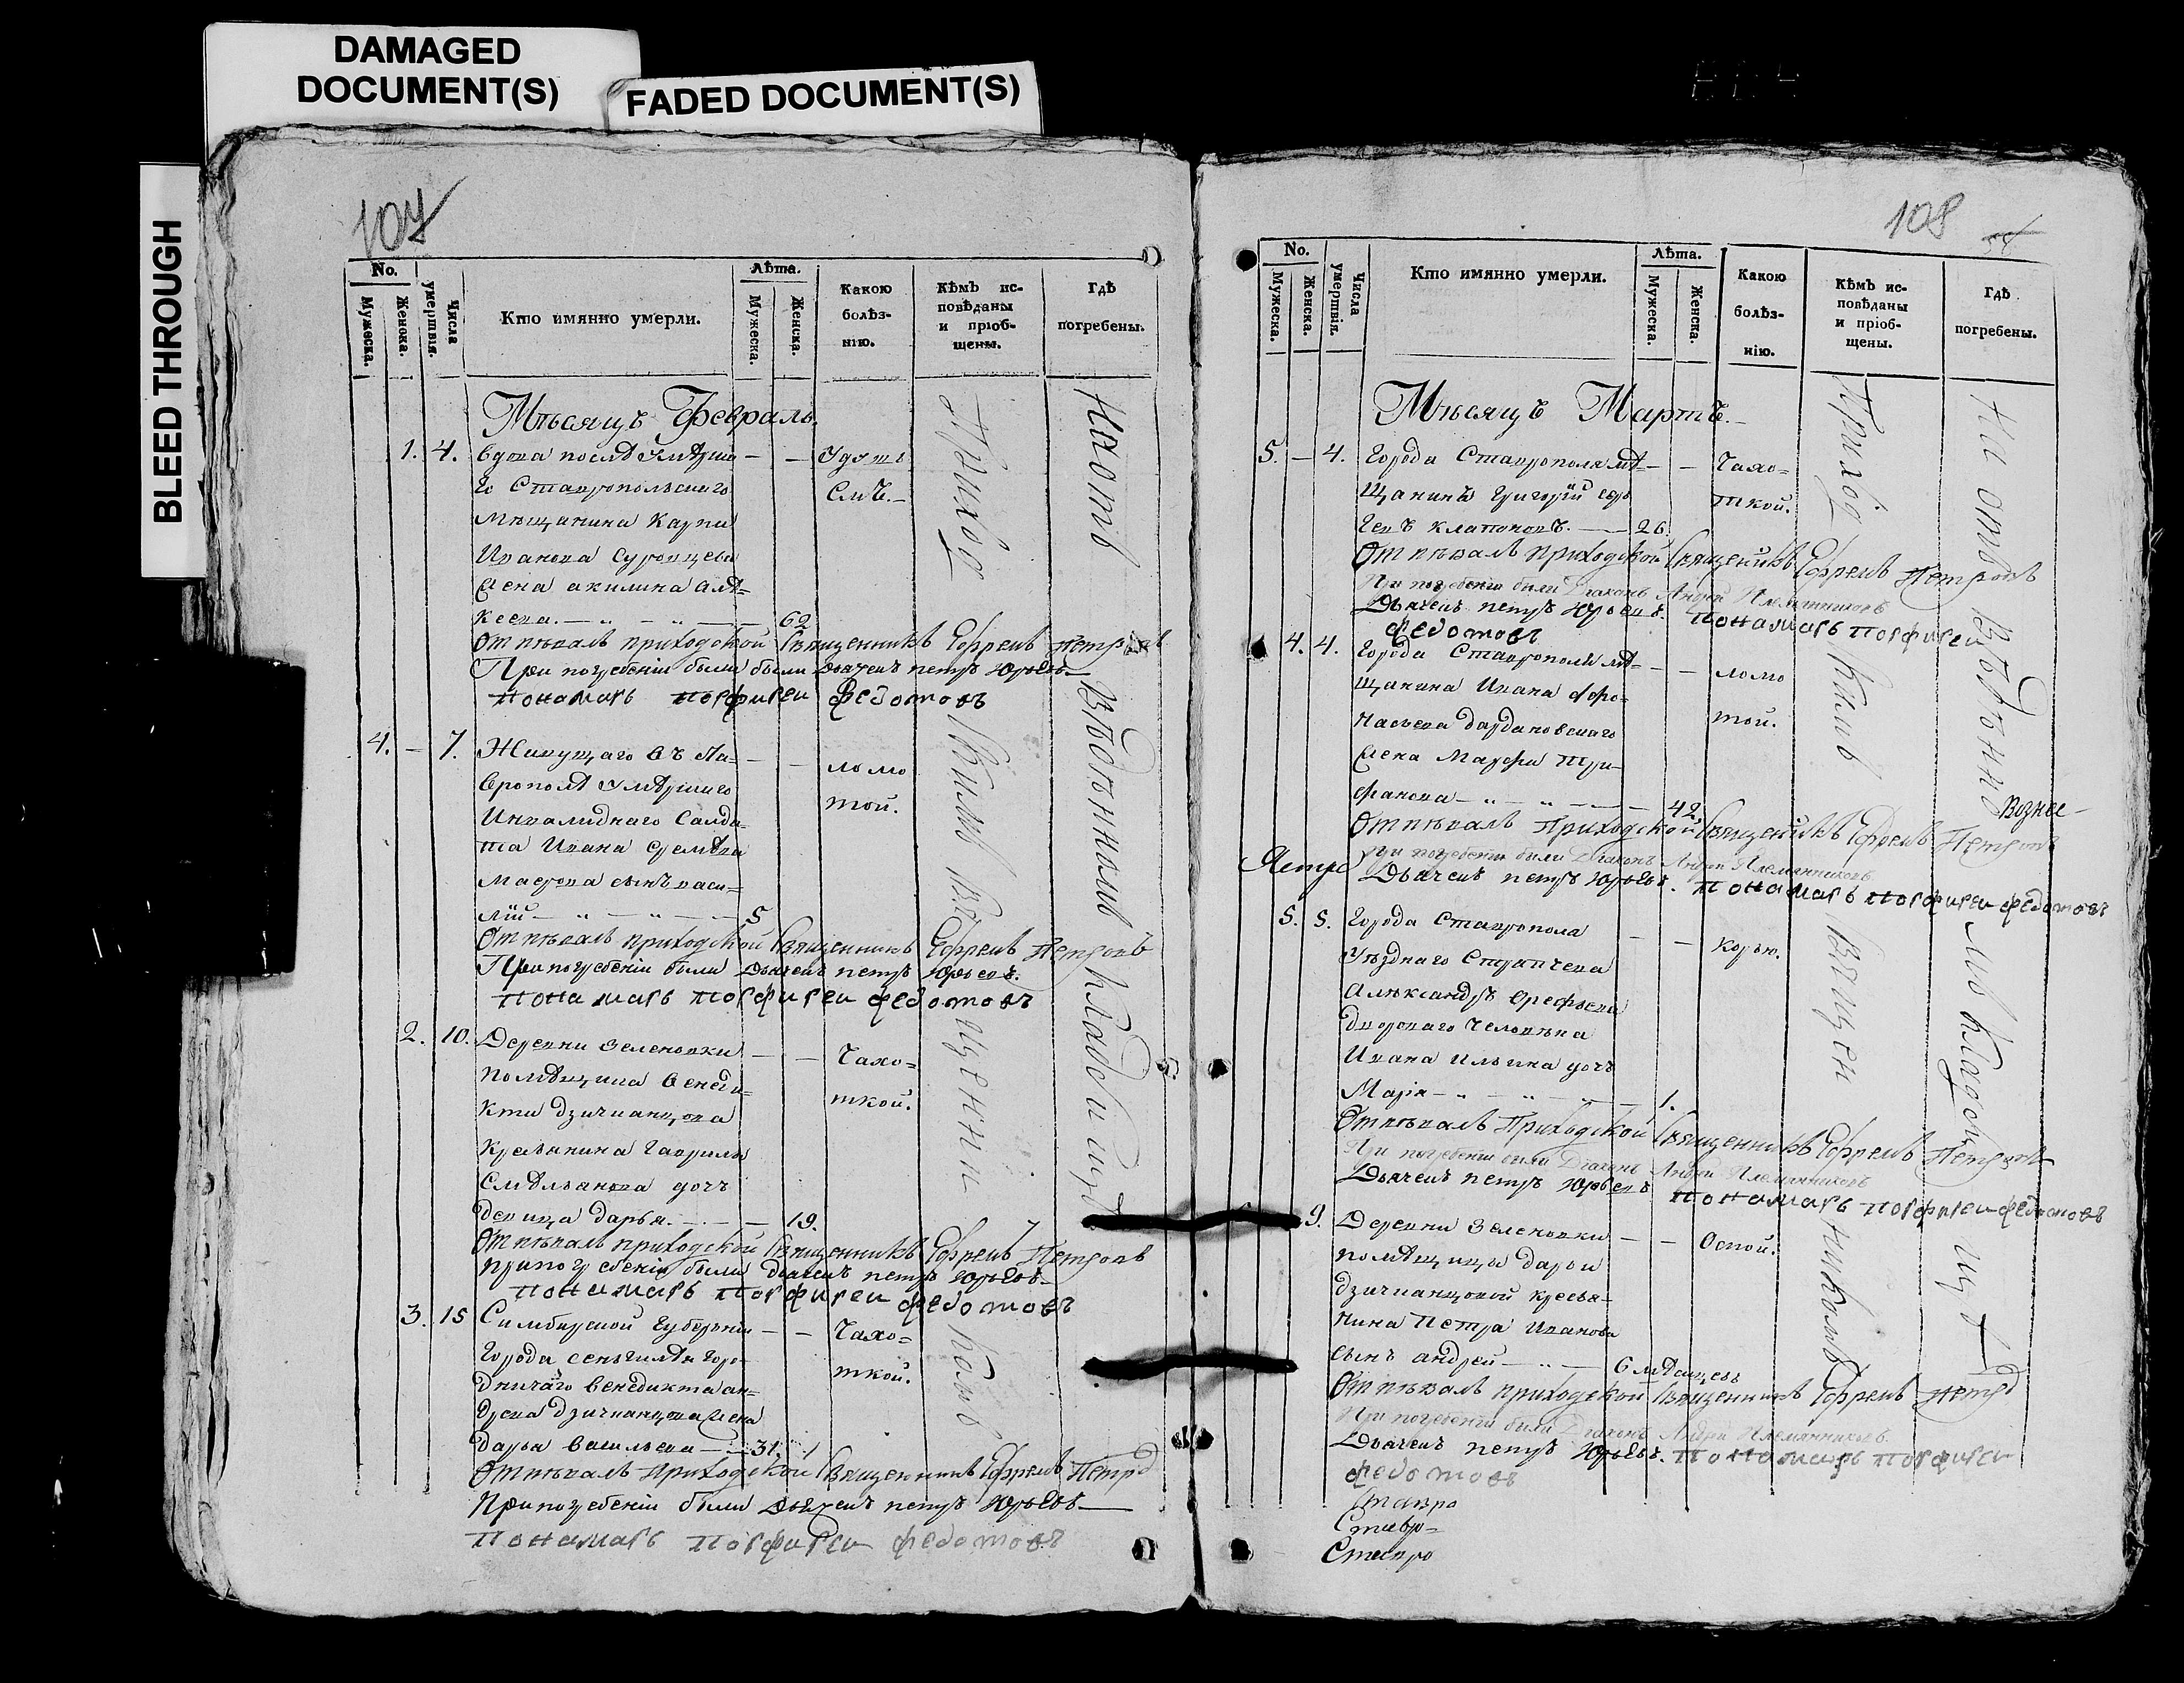 DAMAGED
DOCUMENT(S)
FADED DOCUMENT(S)
BLEED THROUGH
107
No.
Мужеска.
Женска.
Числа умертвія.
Кто имянно умерли.
Лѣта.
Мужеска.
Женска.
Какою
болѣз-
нію.
Кѣмъ ис-
повѣданы
и пріоб-
щены.
Гдѣ
погребены.
Мѣсяцъ Февраль.
1. 4. Вдова послѣ умѣрша — — Удушь
го Ставропольскаго емъ.
мѣщанина Карпа
Иванова Суровцева
жена акилина алѣ=
ксеева. — 62
Отпѣвалъ приходской Священникъ Ефремъ Петровъ
При погребеніи были были дьячекъ петръ Юрьевъ
понамарь порфирей федотовъ
4. — 7. Живущаго въ Ста= — — ломо
врополѣ умѣршаго той.
Инвалиднаго Салда=
та Ивана
сынъ васи=
лій — 5
Отпѣвалъ приходской Священникъ Ефремъ Петровъ
При погребеніи были дьячекъ петръ Юрьевъ.
понамарь порфирей федотовъ
2. 10. Деревни зеленовки — — Чахо=
помѣщика венеди= ткой.
кта дзичканцова
крестьянина гаврилы
Смѣльанова дочь
девица дарья. — 19.
Отпѣвалъ приходской Священникъ Ефремъ Петровъ
при погребеніи были дьячекъ петръ Юрьевъ
понамарь порфирей федотовъ
3. 15 Симбирской губерніи — — Чахо=
города сенгилѣя горо= ткой.
дничаго венедикта ан=
дреева дзичканцова жена
дарья васильева — 31.
Отпѣвалъ приходской Священникъ Ефремъ Петро
При погребеніи были дьячекъ петръ Юрьевъ
понамарь порфирей федотовъ
Приход скимъ священникомъ
На отведенномъ кладбищѣ
108
No.
Мужеска.
Женска.
Числа умертвія.
Кто имянно умерли.
Лѣта.
Мужеска.
Женска.
Какою
болѣз-
нію.
Кѣмъ ис-
повѣданы
и пріоб-
щены.
Гдѣ
погребены.
Мѣсяцъ Мартъ.
5. — 4. Города Ставрополя мѣ= — — Чахо=
щанинъ григорій сер= ткой.
геевъ клапоновъ. — 26
Отпѣвалъ приходской Священникъ Ефремъ Петровъ
При погребеніи были Діаконъ Андрей Племянниковъ
Дьячекъ петръ Юрьевъ. понамарь порфирей
федотовъ
4. 4. Города Ставрополя мѣ= — — ломо
щанина Ивана афо= той.
насьева дардановскаго
жена Марфа Три=
фанова — 42
Вознес-
Отпѣвалъ Приходской Священникъ Ефремъ Петровъ
При погребеніи были Діаконъ Андрей Племянниковъ
Дьячекъ петръ Юрьевъ. понамарь порфирей федотовъ
5. 5. Города Ставрополя — — Корью.
Уѣзднаго Стряпчева
Алѣксандръ ерефьева
дворового человѣка
Ивана ильина дочь
Марія — 1.
Отпѣвалъ Приходской Священникъ Ефремъ Петровъ
При погребеніи были Діаконъ Андрей Племянниковъ
Дьячекъ петръ Юрьевъ понамарь порфирей федотовъ
9. Деревни зеленовки — — Оспой.
помѣщицы дарьи
дзичканцовой крестья=
нина Петра Иванова
сынъ андрей — 6 мѣсяцевъ
Отпѣвалъ приходской Священникъ Ефремъ Петро
При погребеніи были Діаконъ Андрей Племянниковъ
Дьячекъ петръ Юрьевъ. понамарь порфирей
федотовъ
Ставро
Ставр=
Ставро
Приход скимъ священникомъ
На отведенномъ кладбищѣ